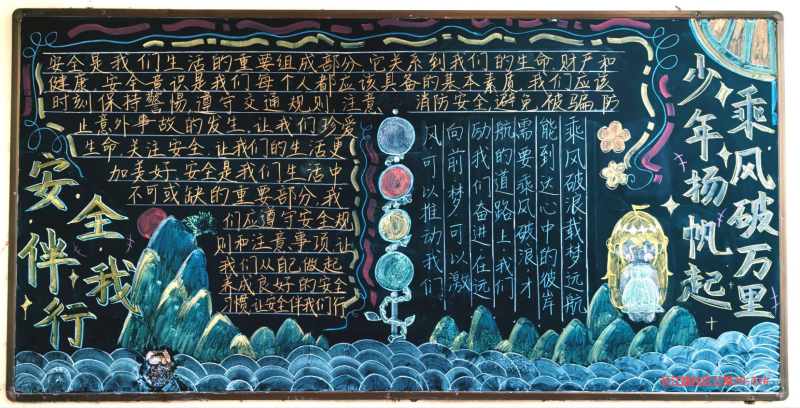 安全伴我行
安全是我们生活的重要组成部分,它关系到我们的生命、财产和
健康,安全意识是我们每个人都应该具备的基本素质,我们应该
时刻保持警惕,遵守交通规则,注意 消防安全,避免被骗,防
止意外事故的发生,让我们珍爱
生命,关注安全,让我们的生活更
加美好,安全是我们生活中
不可或缺的重要部分,我
们应遵守安全规
则和注意事项,让
我们从自己做起
养成良好的安全
习惯,让安全伴我们行
风可以推动我们
向前,梦可以激
励我们奋进,在远
航的道路上,我们
需要乘风破浪,才
能到达心中的彼岸
乘风破浪载梦远航
乘风破万里
少年扬帆起